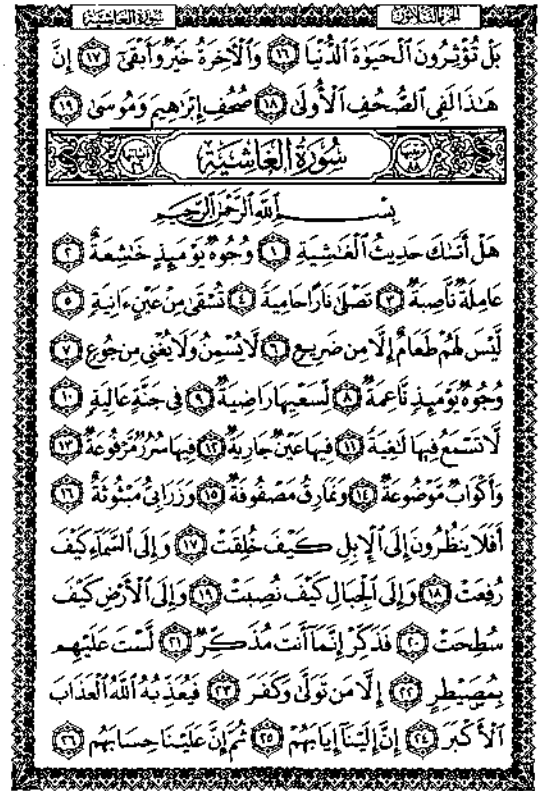 سورة الغاشية الجزء الثلاثون
بَلْ تُؤْثِرُونَ ٱلْحَيَوٰةَ ٱلدُّنْيَا ١٦ وَٱلْءَاخِرَةُ خَيْرٌ وَأَبْقَىٰٓ ١٧ إِنَّ
هَٰذَا لَفِى ٱلصُّحُفِ ٱلْأُولَىٰ ١٨ صُحُفِ إِبْرَٰهِيمَ وَمُوسَىٰ ١٩
سُورَةُ الغَاشِيَةِ
بِسْمِ ٱللَّهِ ٱلرَّحْمَٰنِ ٱلرَّحِيمِ
هَلْ أَتَىٰكَ حَدِيثُ ٱلْغَٰشِيَةِ ١ وُجُوهٌ يَوْمَئِذٍ خَٰشِعَةٌ ٢
عَامِلَةٌ نَّاصِبَةٌ ٣ تَصْلَىٰ نَارًا حَامِيَةً ٤ تُسْقَىٰ مِنْ عَيْنٍ ءَانِيَةٍ ٥
لَّيْسَ لَهُمْ طَعَامٌ إِلَّا مِن ضَرِيعٍ ٦ لَّا يُسْمِنُ وَلَا يُغْنِى مِن جُوعٍ ٧
وُجُوهٌ يَوْمَئِذٍ نَّاعِمَةٌ ٨ لِّسَعْيِهَا رَاضِيَةٌ ٩ فِى جَنَّةٍ عَالِيَةٍ ١٠
لَّا تَسْمَعُ فِيهَا لَٰغِيَةً ١١ فِيهَا عَيْنٌ جَارِيَةٌ ١٢ فِيهَا سُرُرٌ مَّرْفُوعَةٌ ١٣
وَأَكْوَابٌ مَّوْضُوعَةٌ ١٤ وَنَمَارِقُ مَصْفُوفَةٌ ١٥ وَزَرَابِىُّ مَبْثُوثَةٌ ١٦
أَفَلَا يَنظُرُونَ إِلَى ٱلْإِبِلِ كَيْفَ خُلِقَتْ ١٧ وَإِلَى ٱلسَّمَآءِ كَيْفَ
رُفِعَتْ ١٨ وَإِلَى ٱلْجِبَالِ كَيْفَ نُصِبَتْ ١٩ وَإِلَى ٱلْأَرْضِ كَيْفَ
سُطِحَتْ ٢٠ فَذَكِّرْ إِنَّمَآ أَنتَ مُذَكِّرٌ ٢١ لَّسْتَ عَلَيْهِم
بِمُصَيْطِرٍ ٢٢ إِلَّا مَن تَوَلَّىٰ وَكَفَرَ ٢٣ فَيُعَذِّبُهُ ٱللَّهُ ٱلْعَذَابَ
ٱلْأَكْبَرَ ٢٤ إِنَّ إِلَيْنَآ إِيَابَهُمْ ٢٥ ثُمَّ إِنَّ عَلَيْنَا حِسَابَهُم ٢٦